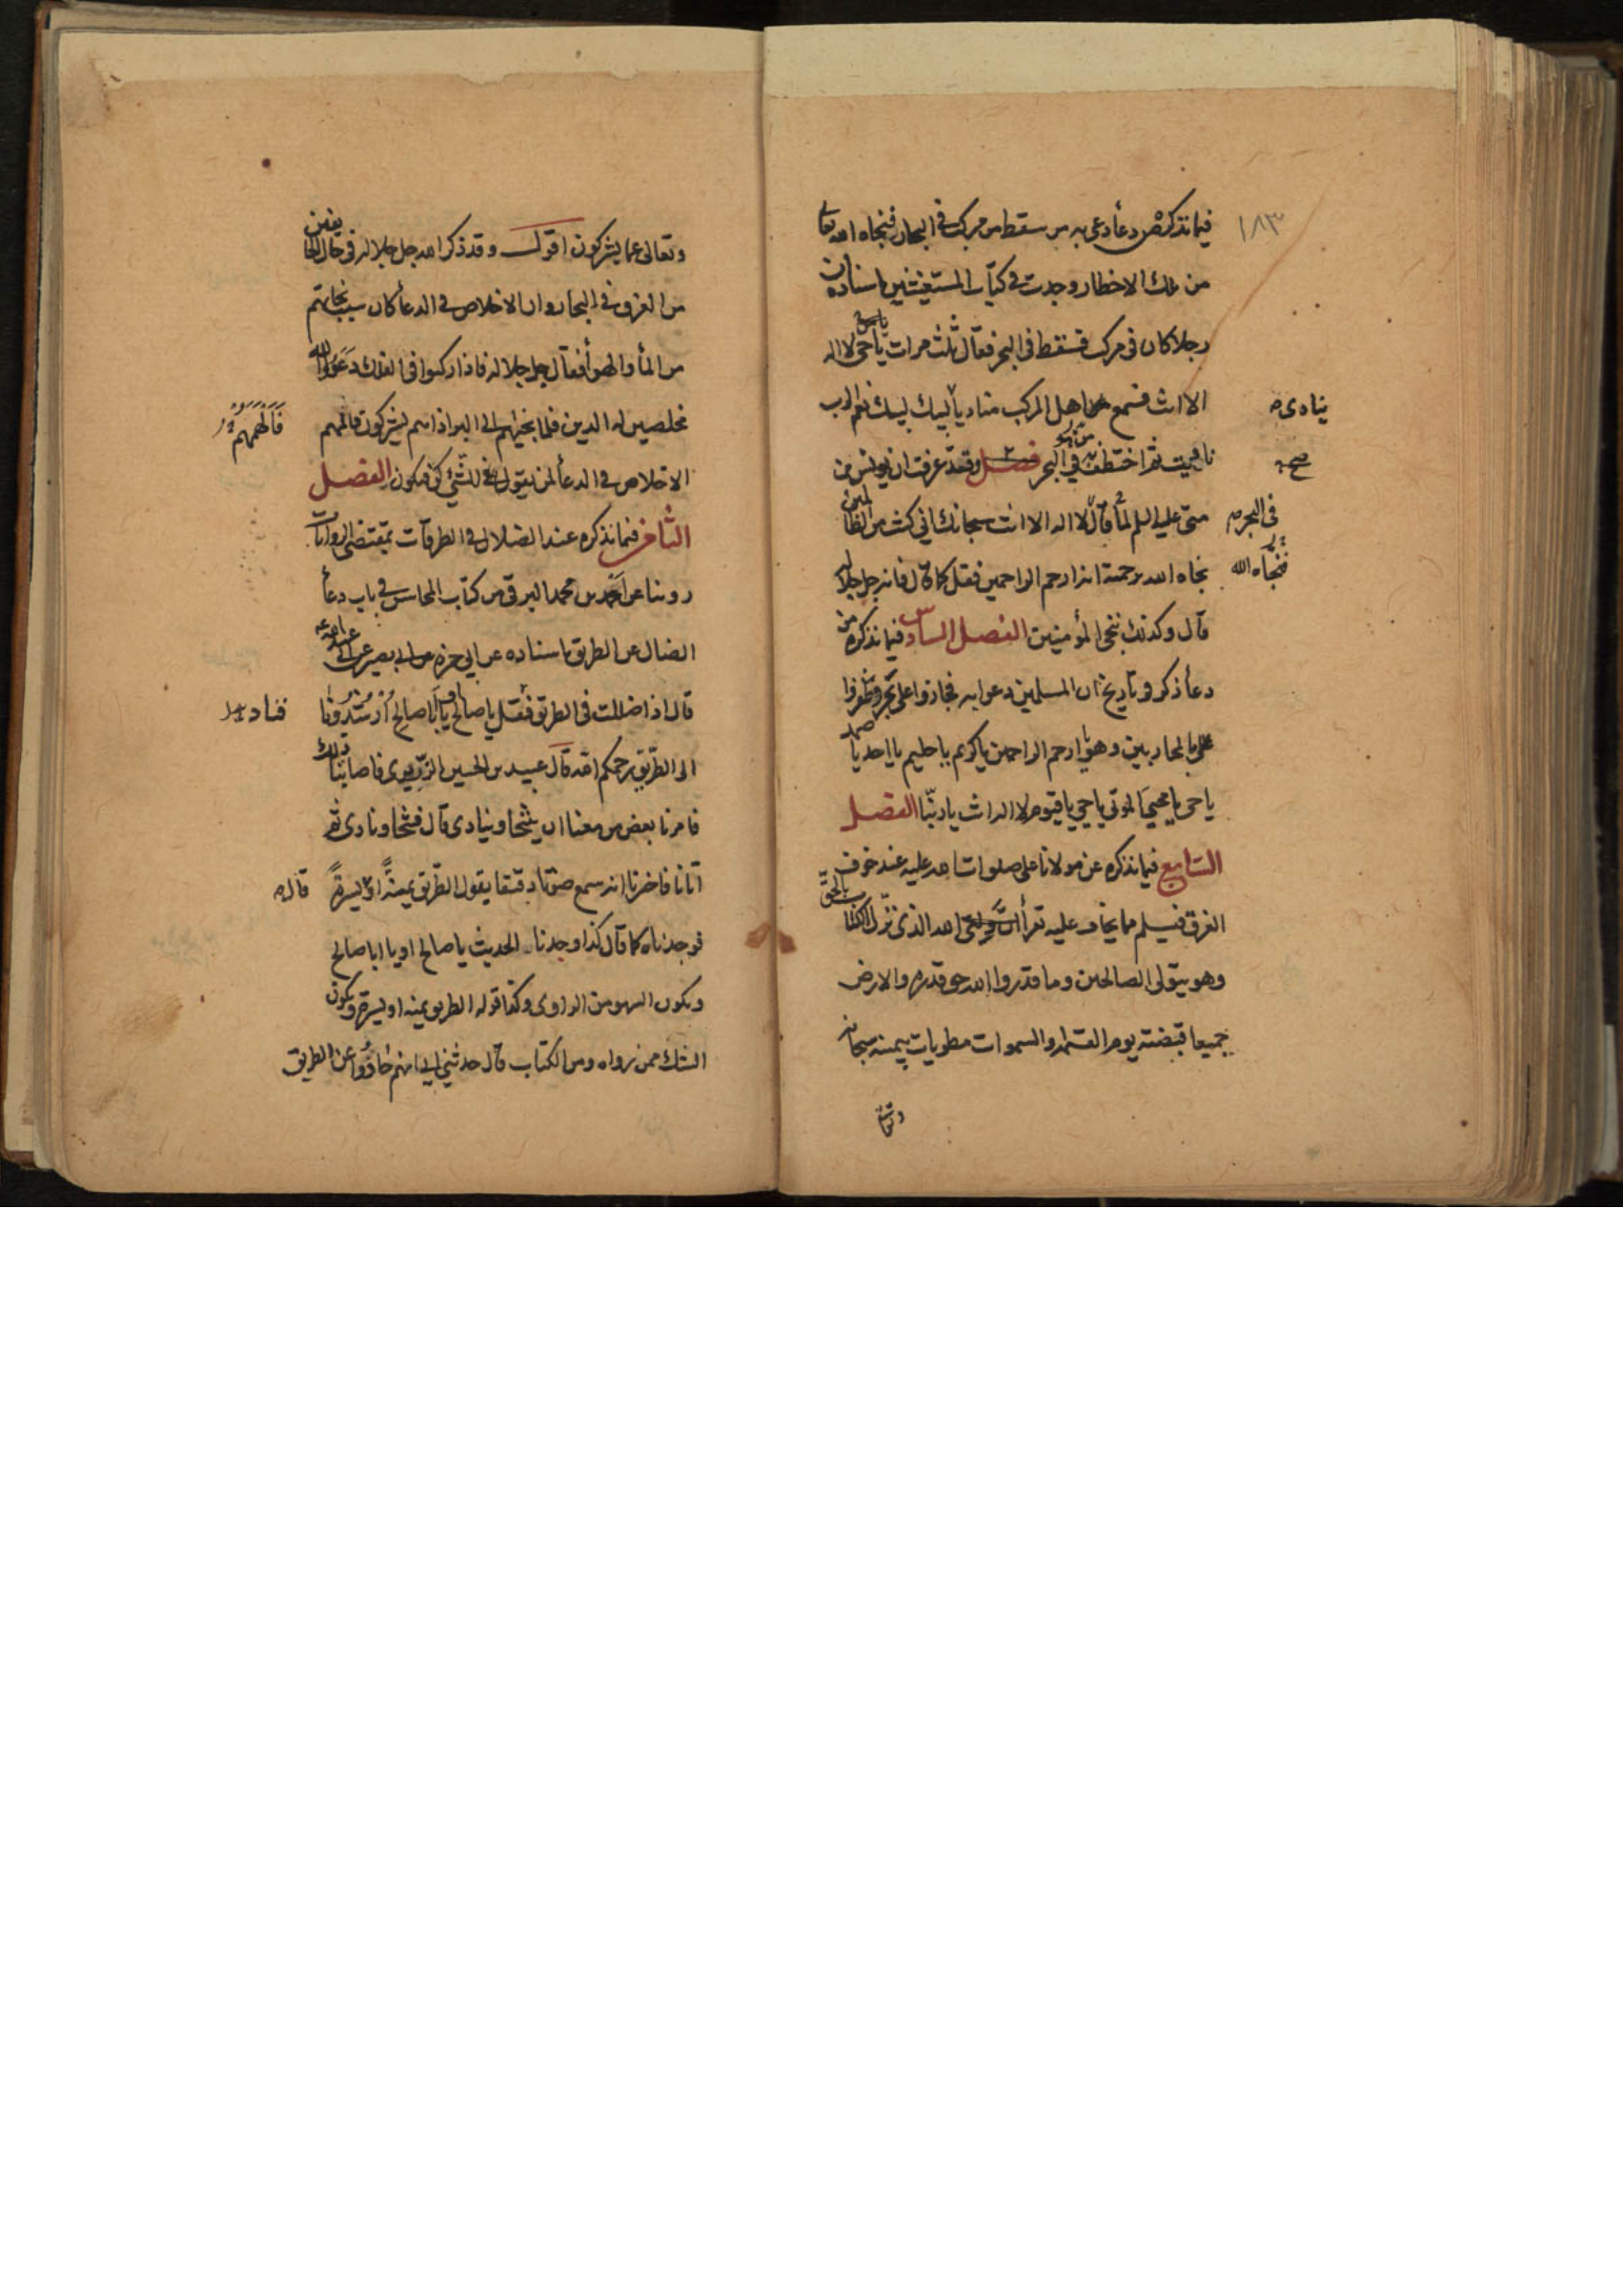 ١٨٣
فيما نذكره من دعأ دعى به من سقط من مركب فى البحار فنجاه الله تعالى
من تلك الاخطار وجدت فى كتاب المستغيثين باسناده ان
رجلا كان فى مركب فسقط فى البحر فقال ثلث مرات يا حى لا اله
الا انت فسمع اهل المركب مناديا لبيك لبيك نعم الرب
ينادى
ناديت ثم اختطف من البحر فصل وقد عرفت ان يونس بن
صح
متى عليه السلم لمأ قال لا اله الا انت سبحانك انى كنت من الظالمين
فى البحر
نجاه الله برحمته انه ارحم الراحمين فقل كما قال فانه جل جلاله
فنجاه الله
قال وكذلك ننجى المؤمنين الفصل السادس فيما نذكره من
دعأ ذكر فى تاريخ ان المسلمين دعوا به فجازوا على بحر وظفروا
بالمحاربين وهو يا ارحم الراحمين يا كريم يا حليم يا احد يا صمد
يا حى يا محيى الموتى يا حى يا قيوم لا اله الا انت يا ربنا الفصل
السابع فيما نذكره عن مولانا على صلوات الله عليه عند خوف
الغرق فيسلم مما يخاف عليه تقرأ ان وليى الله الذى نزل الكتاب بالحق
وهو يتولى الصالحين وما قدروا الله حق قدره والارض
جميعا قبضته يوم القيمة والسموات مطويات بيمينه سبحانه
وتعالى
وتعالى عما يشركون اقول وقد ذكر الله جل جلاله فى حال الخايفين
من الغرق فى البحار وان الاخلاص فى الدعأ كان سبب نجاتهم
من المأ والهوأ فقال جل جلاله فاذا ركبوا فى الفلك دعوا الله
مخلصين له الدين فلما نجيهم الى البر اذا هم يشركون فالهمهم
فالهمهم
الاخلاص فى الدعأ لمن يقول للشئ كن فيكون الفصل
الثامن فيما نذكره عند الضلال فى الطرقات بمقتضى الروايات
روينا عن احمد بن محمد البرقى من كتاب المحاسن فى باب دعأ
الضال عن الطريق باسناده عن ابى حمزه عن ابى بصير عن ابى عبد الله ع
قال اذا ضللت فى الطريق فقل يا صالح ويا ابا صالح ارشدونا
فناد
الى الطريق يرحمكم الله قال عبيد بن الحسين الزرندى فاصابنا ذلك
فامرنا بعض من معنا ان يتنحا وينادى قال فتنحا ونادى ثم
اتانا فاخبرنا انه سمع صوتا دقيقا يقول الطريق يمنة او يسرة
قال
فوجدناه كما قال كذا وجدنا الحديث يا صالح او يا ابا صالح
ويكون السهو من الراوى وكذا قوله الطريق يمنه او يسرة ويكون
الشك ممن رواه ومن الكتاب قال حدثنى ابى انهم حادوا عن الطريق